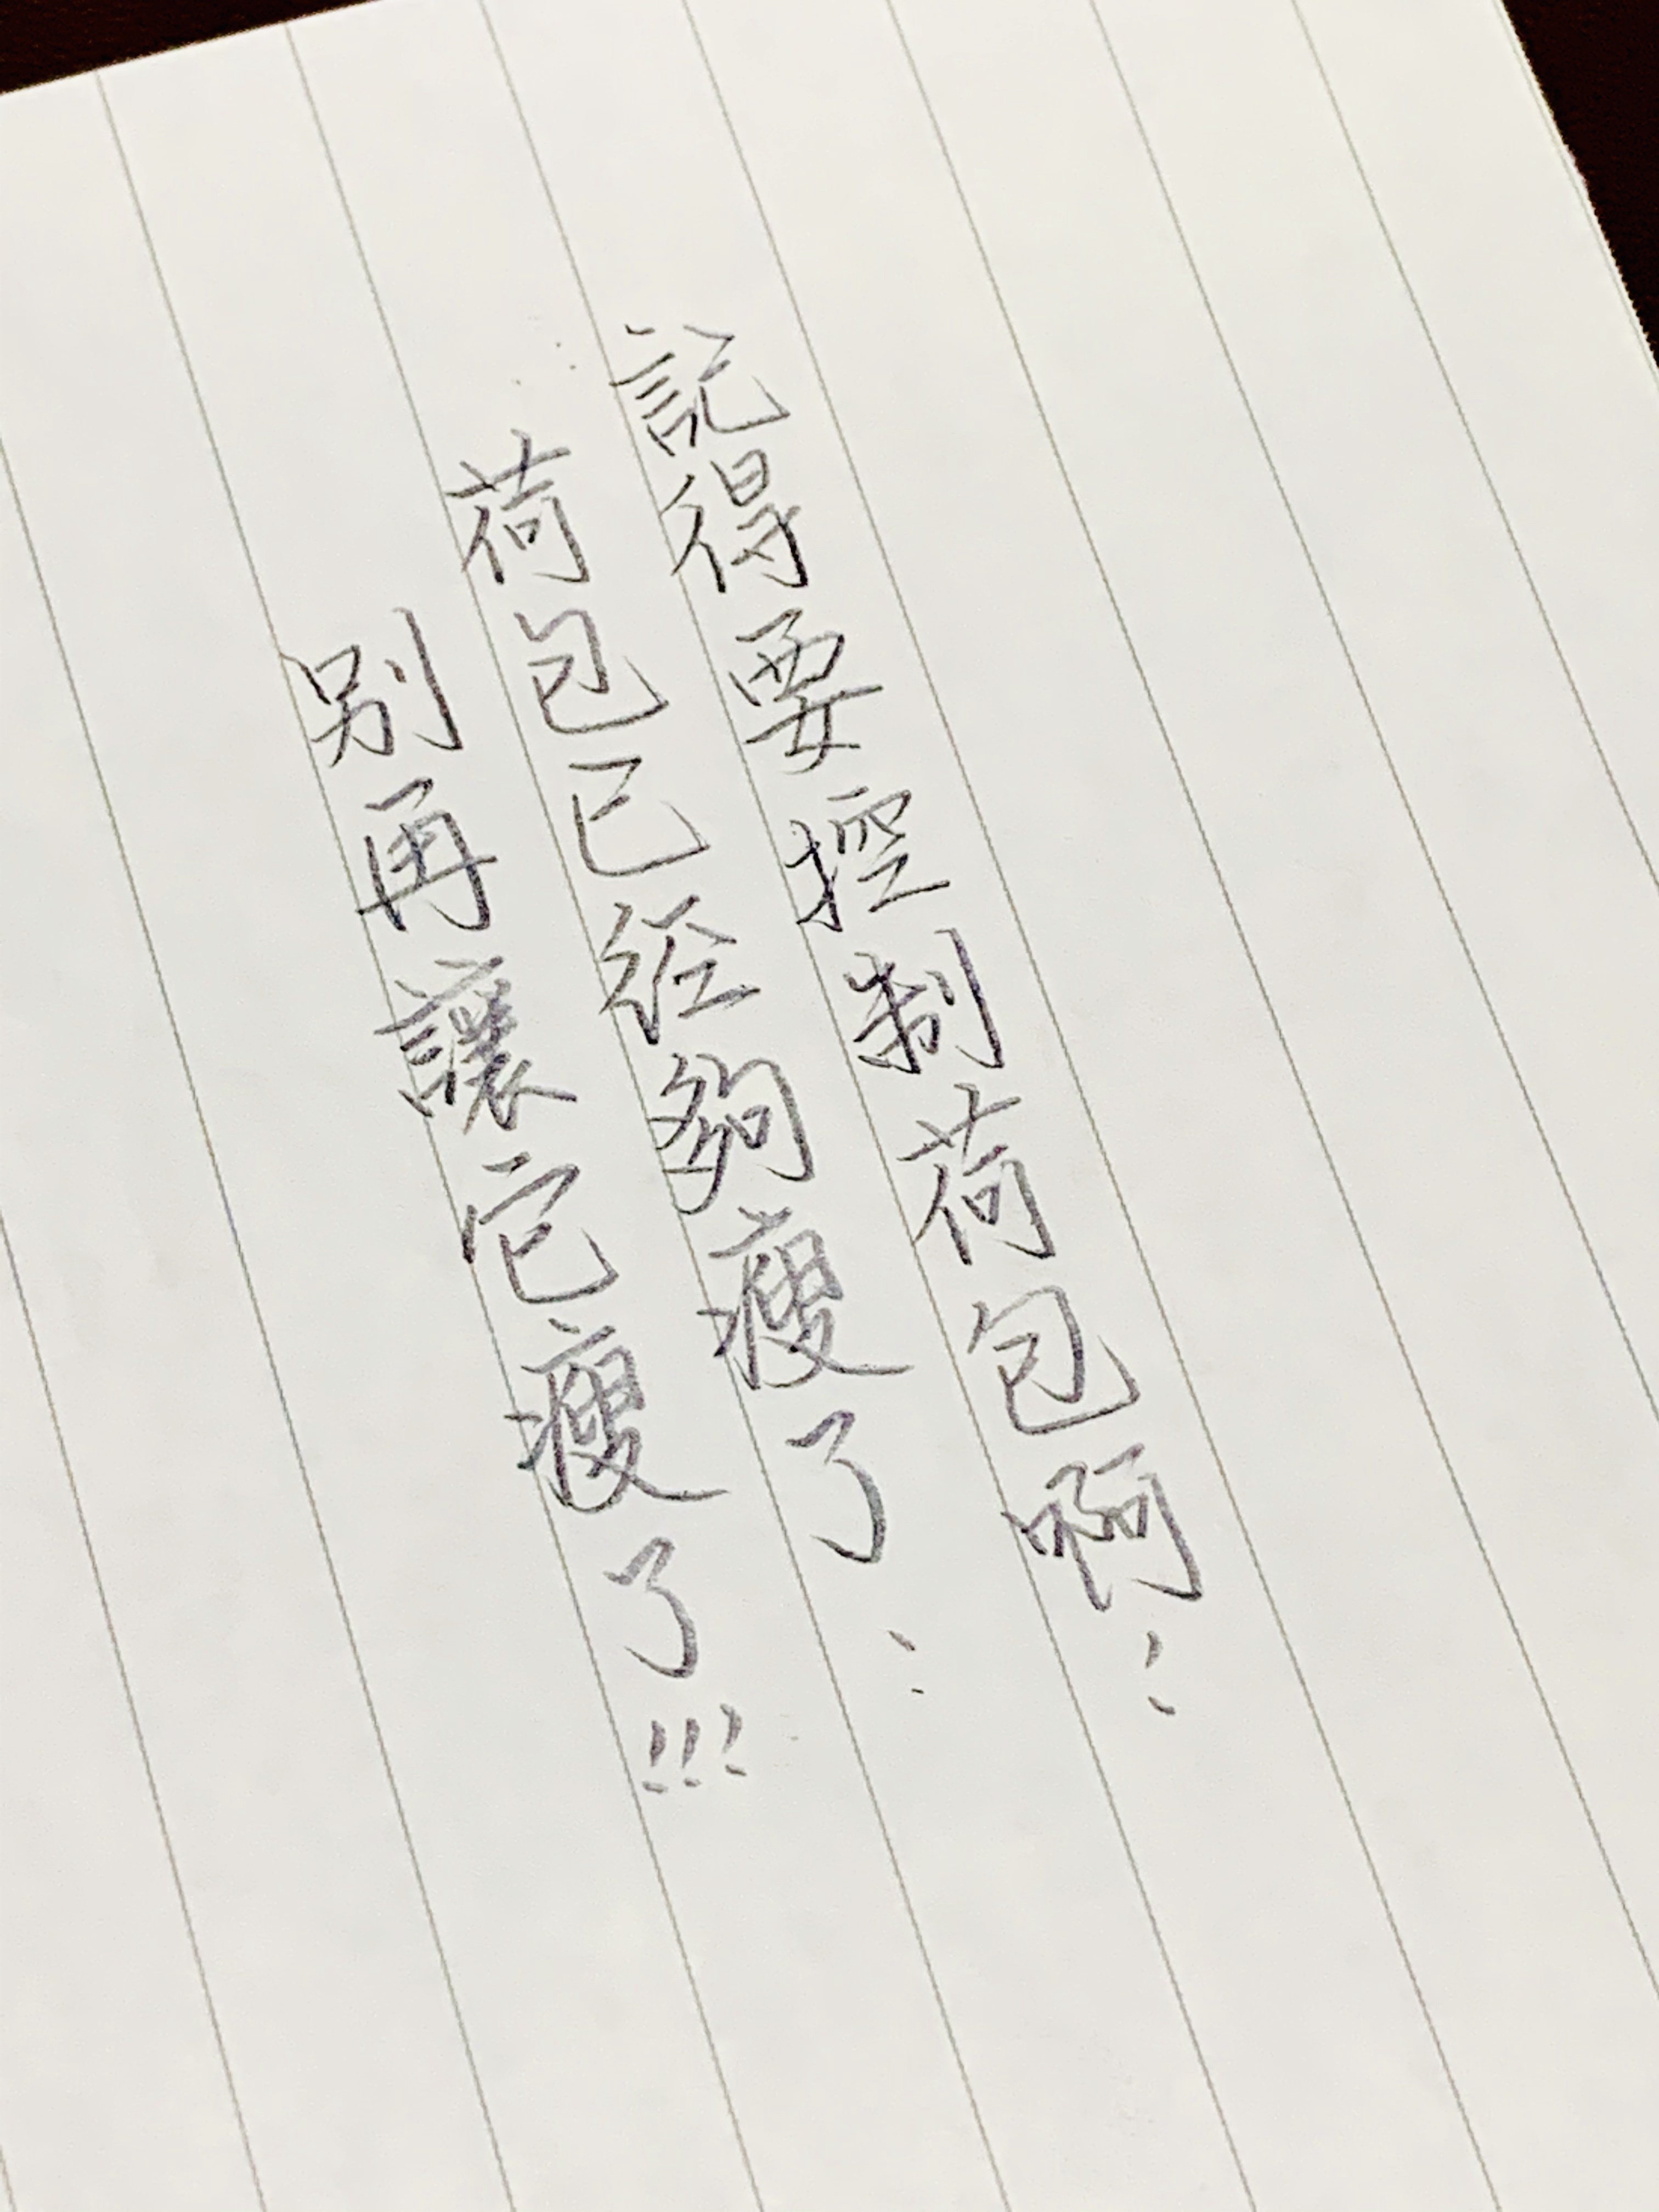 記得要控制荷包啊!
荷包已經夠瘦了:
別再讓它瘦了!!!